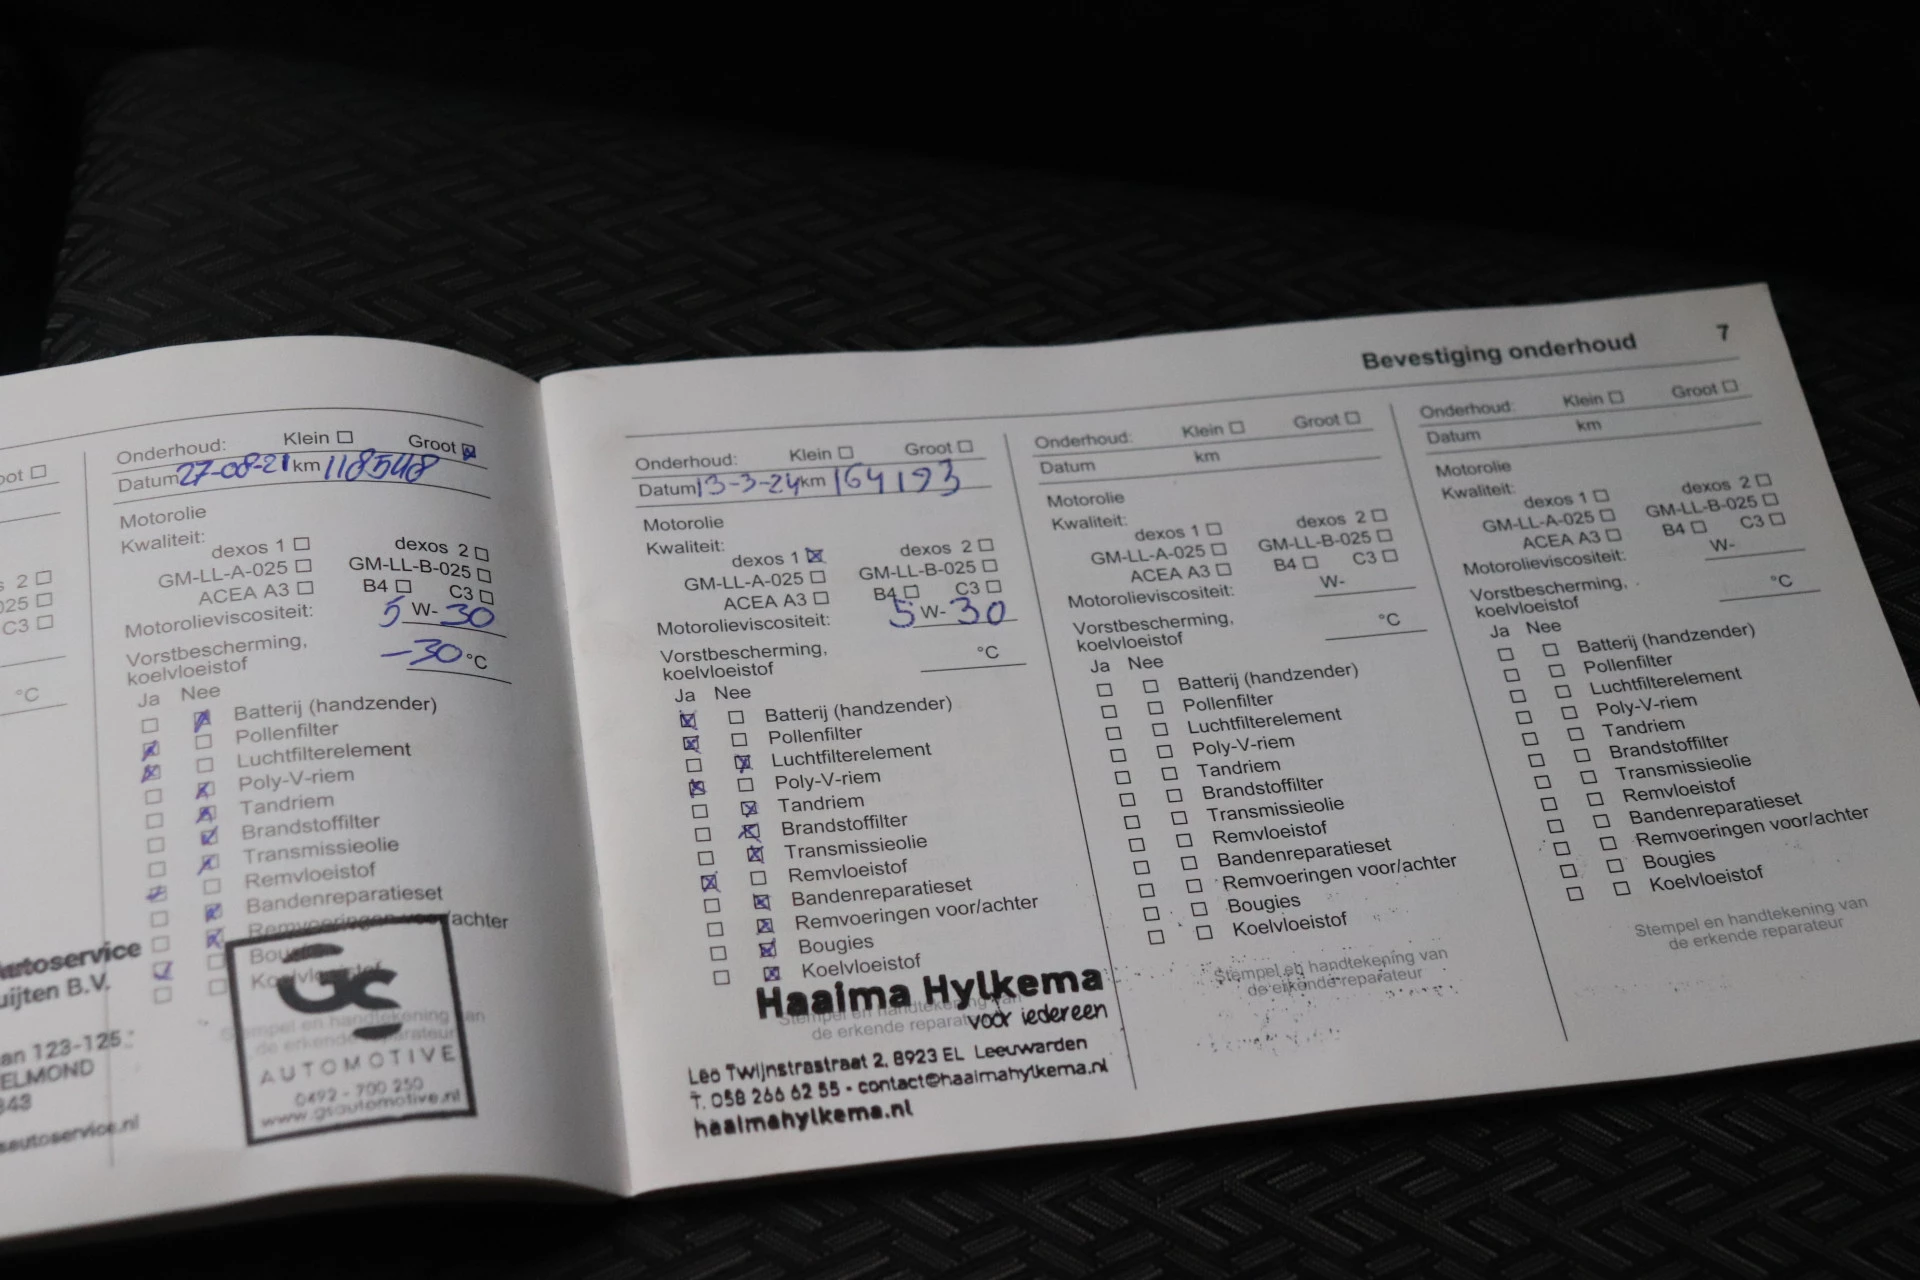 Bevestiging onderhoud 7
oot
s 2
025
C3
°C
utoservice
uijten B.V.
an 123-125
ELMOND
843
seutoservice.nl
Onderhoud: Klein Groot
Datum 27-08-21 km 118548
Motorolie
Kwaliteit:
dexos 1 dexos 2
GM-LL-A-025 GM-LL-B-025
ACEA A3 B4 C3
Motorolieviscositeit: 5 W- 30
Vorstbescherming,
koelvloeistof -30 °C
Ja Nee
Batterij (handzender)
Pollenfilter
Luchtfilterelement
Poly-V-riem
Tandriem
Brandstoffilter
Transmissieolie
Remvloeistof
Bandenreparatieset
Remvoeringen voor/achter
Bougies
Koelvloeistof
Stempel en handtekening van
de erkende reparateur
GS
AUTOMOTIVE
0492 - 700 250
www.gsautomotive.nl
Onderhoud: Klein Groot
Datum 13-3-24 km 164193
Motorolie
Kwaliteit:
dexos 1 dexos 2
GM-LL-A-025 GM-LL-B-025
ACEA A3 B4 C3
Motorolieviscositeit: 5 W- 30
Vorstbescherming,
koelvloeistof °C
Ja Nee
Batterij (handzender)
Pollenfilter
Luchtfilterelement
Poly-V-riem
Tandriem
Brandstoffilter
Transmissieolie
Remvloeistof
Bandenreparatieset
Remvoeringen voor/achter
Bougies
Koelvloeistof
Stempel en handtekening van
de erkende reparateur
Haaima Hylkema
voor iedereen
Leo Twijnstrastraat 2, 8923 EL Leeuwarden
T. 058 266 62 55 - contact@haaimahylkema.nl
haaimahylkema.nl
Onderhoud: Klein Groot
Datum km
Motorolie
Kwaliteit:
dexos 1 dexos 2
GM-LL-A-025 GM-LL-B-025
ACEA A3 B4 C3
Motorolieviscositeit: W-
Vorstbescherming,
koelvloeistof °C
Ja Nee
Batterij (handzender)
Pollenfilter
Luchtfilterelement
Poly-V-riem
Tandriem
Brandstoffilter
Transmissieolie
Remvloeistof
Bandenreparatieset
Remvoeringen voor/achter
Bougies
Koelvloeistof
Stempel en handtekening van
de erkende reparateur
Onderhoud: Klein Groot
Datum km
Motorolie
Kwaliteit:
dexos 1 dexos 2
GM-LL-A-025 GM-LL-B-025
ACEA A3 B4 C3
Motorolieviscositeit: W-
Vorstbescherming,
koelvloeistof °C
Ja Nee
Batterij (handzender)
Pollenfilter
Luchtfilterelement
Poly-V-riem
Tandriem
Brandstoffilter
Transmissieolie
Remvloeistof
Bandenreparatieset
Remvoeringen voor/achter
Bougies
Koelvloeistof
Stempel en handtekening van
de erkende reparateur